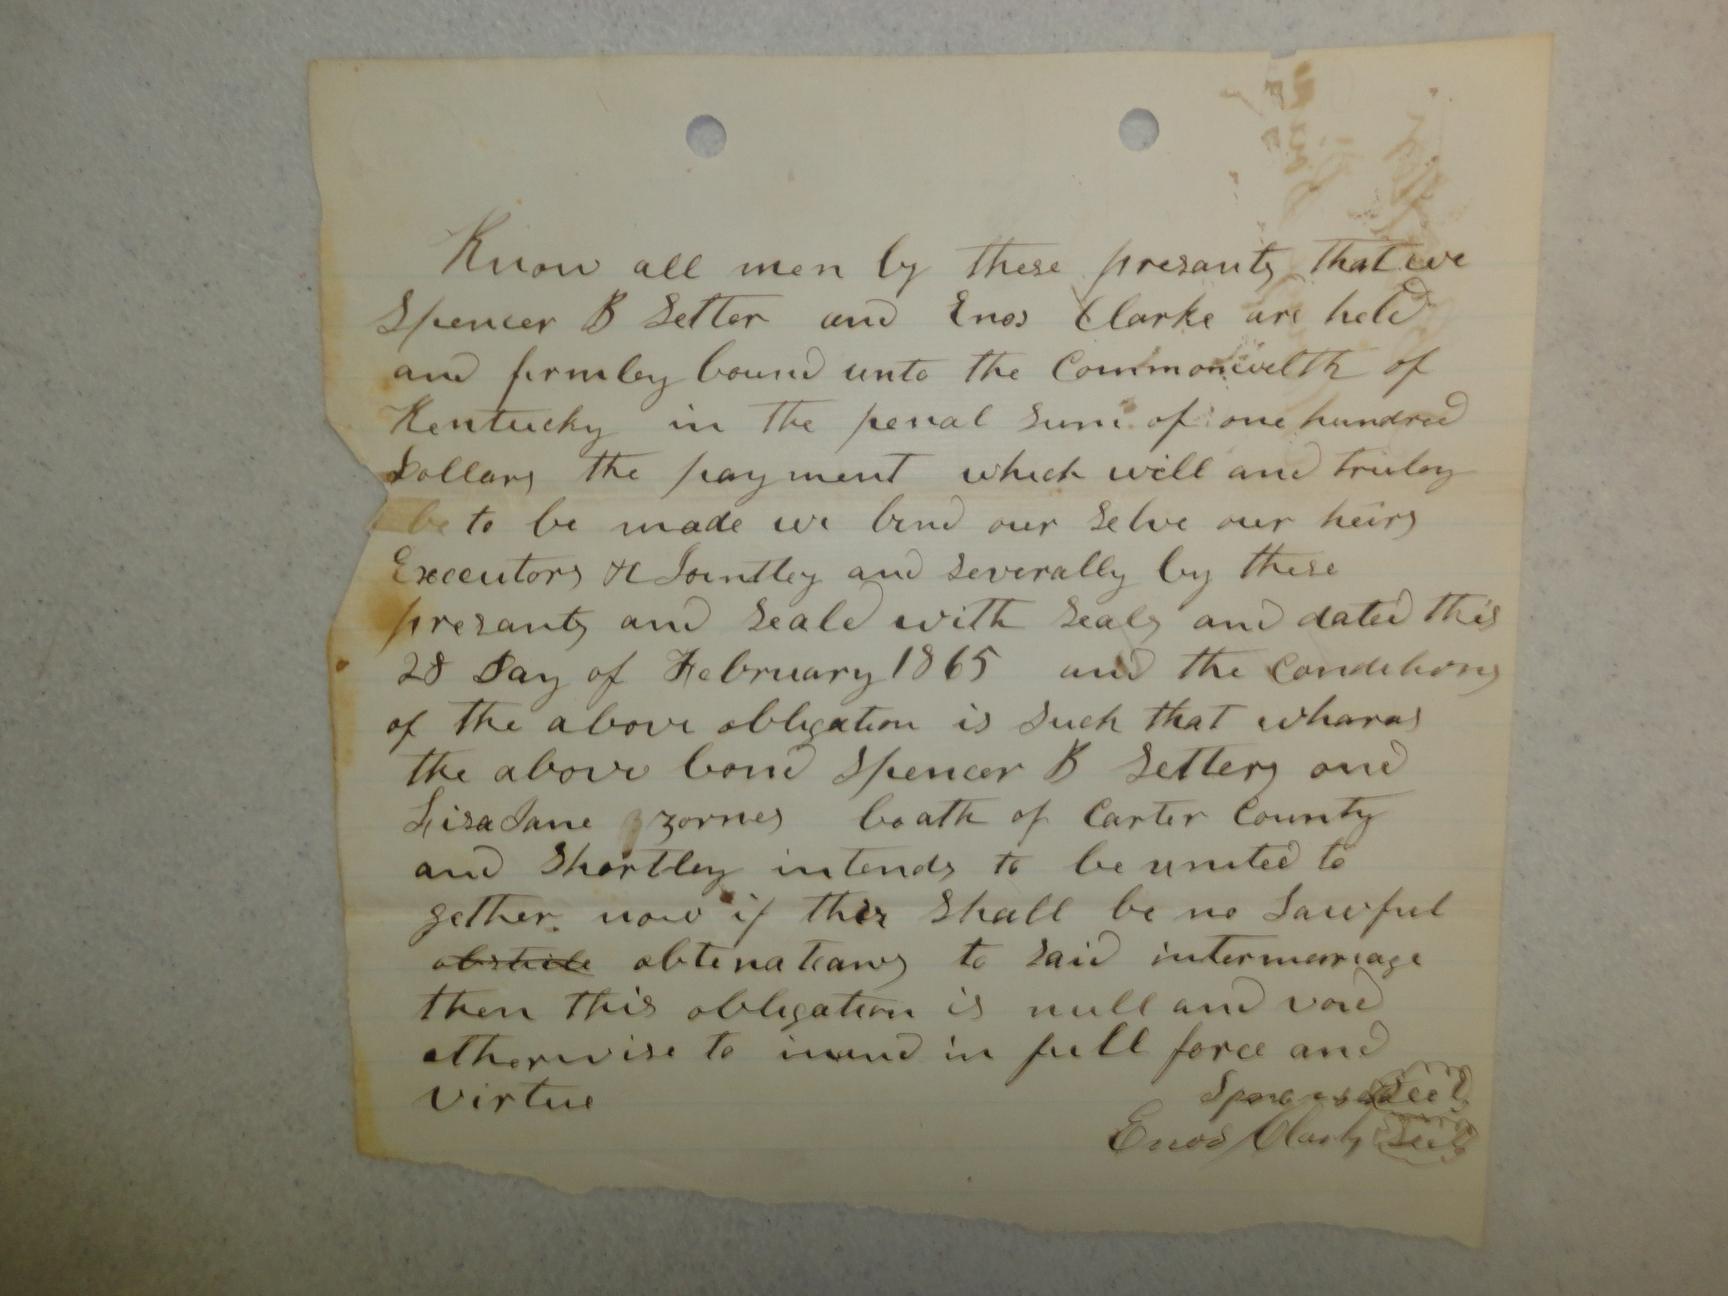 Know all men by these presants that we
Spencer B Setter and Enos Clarke are held
and firmley bound unto the Commonwelth of
Kentucky in the penal Sum of one hundred
Dollars the payment which will and truley
be to be made we bind our Selve our heirs
Executors &c Jointley and Severally by these
presants and Seald with Seals and dated this
28 Day of February 1865 and the Condihons
of the above obligation is Such that wharas
the above bond Spencer B Setters and
Lisa Jane Zornes boath of Carter County
and Shortley intends to be united to
gether. now if ther Shall be no Lawful
obstucle obtenations to Said intermarriage
then this obligation is null and void
otherwise to in full force and
virtue
Seel
Enos Clark Seil